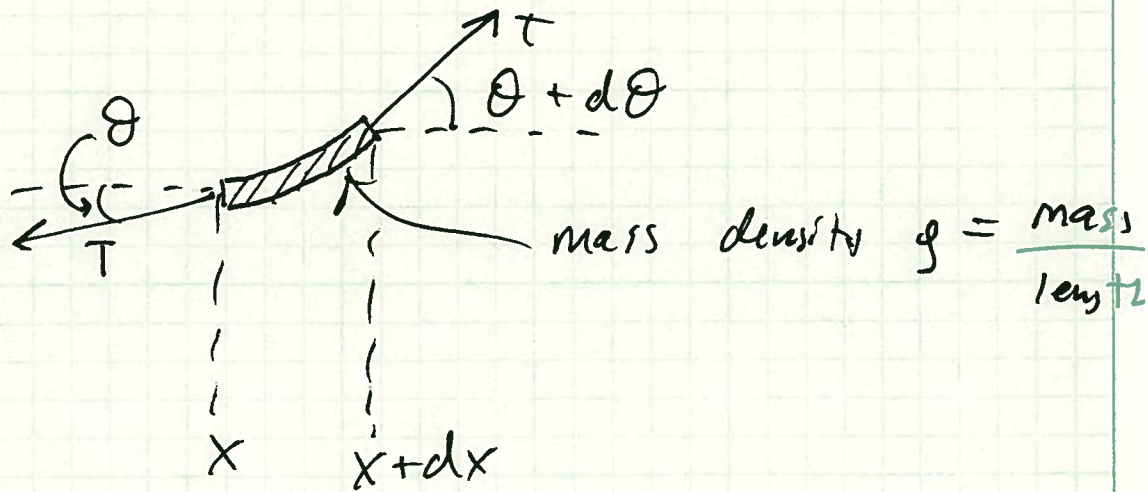 T
θ + dθ
θ
T
mass density ρ = mass
length
x
x+dx